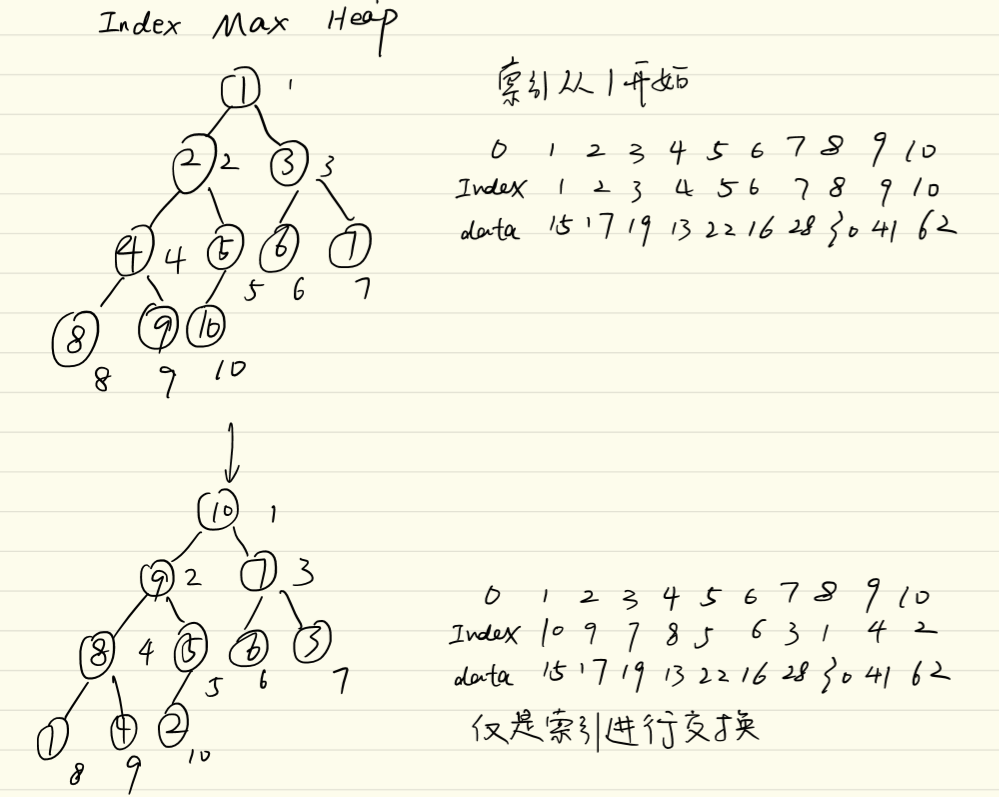 Index Max Heap
索引从1开始
1 1
2 2 3 3
4 4 5 5 6 6 7 7
8 8 9 9 10 10
0 1 2 3 4 5 6 7 8 9 10
Index 1 2 3 4 5 6 7 8 9 10
data 15 17 19 13 22 16 28 30 41 62
10 1
9 2 7 3
8 4 5 5 6 6 3 7
1 8 4 9 2 10
0 1 2 3 4 5 6 7 8 9 10
Index 10 9 7 8 5 6 3 1 4 2
data 15 17 19 13 22 16 28 30 41 62
仅是索引进行交换